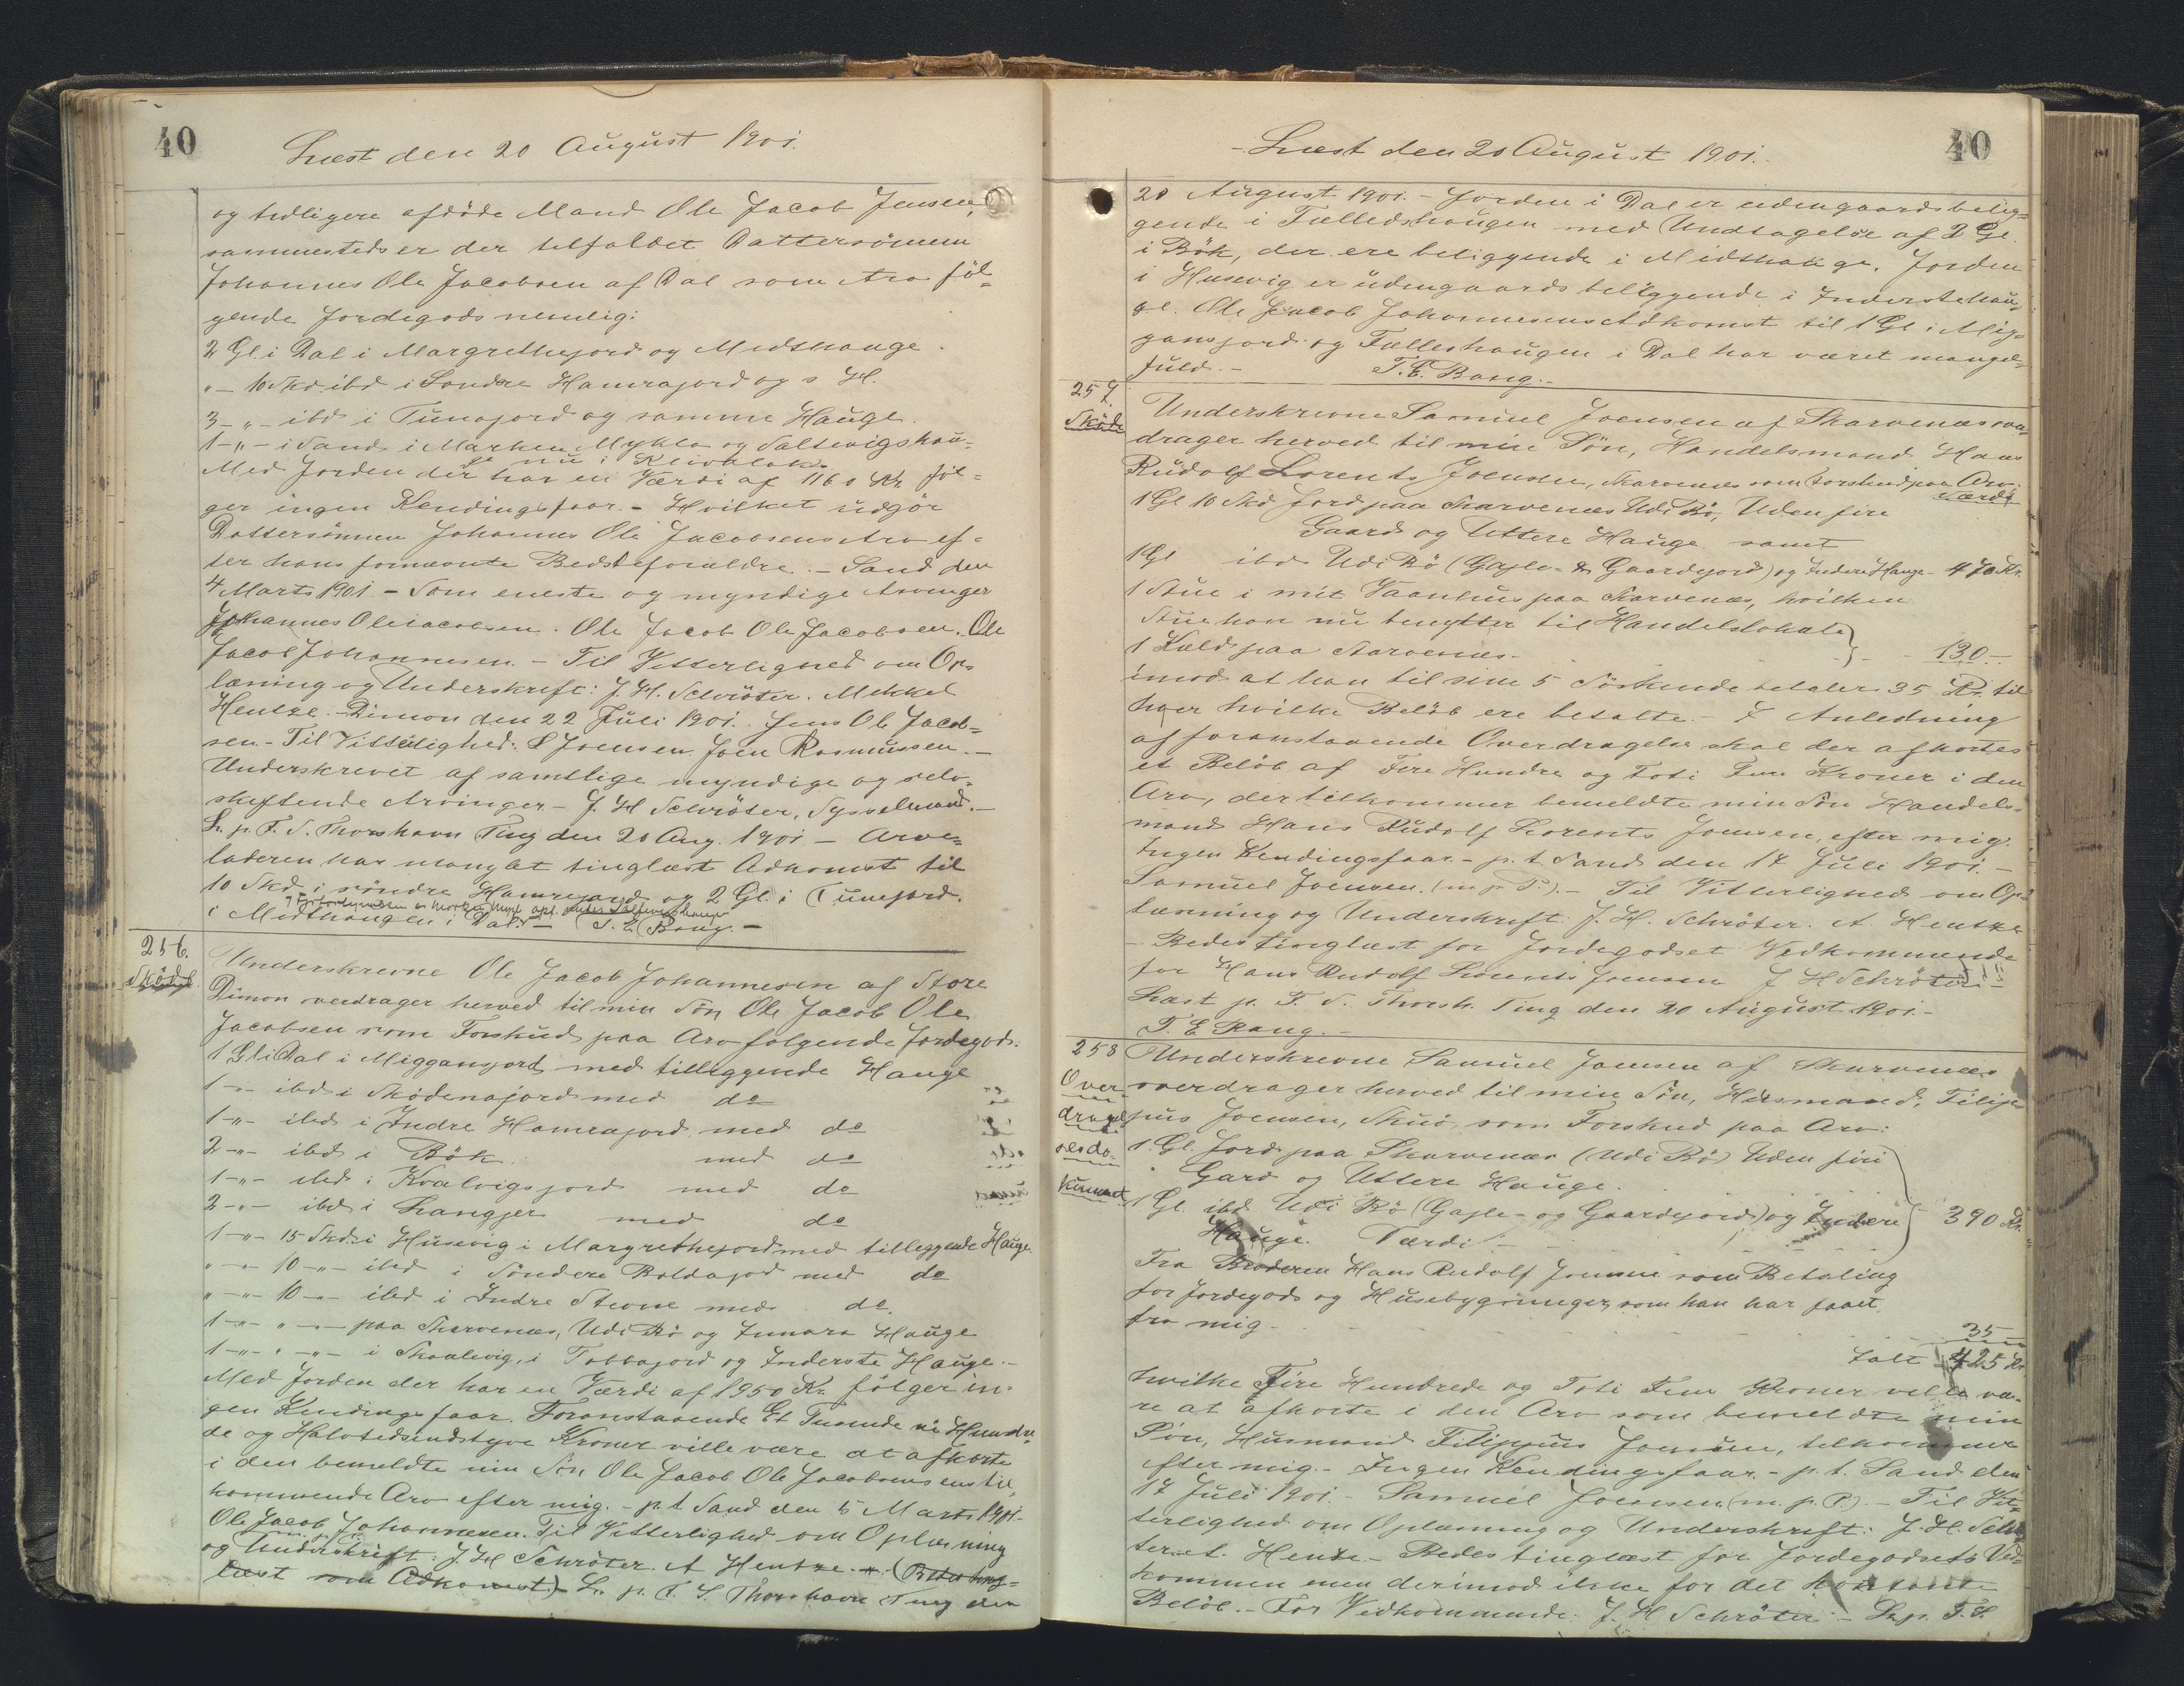 40
Læst den 20 August 1901.
og tidligere afdöde Mand Ole Jacob Jensen,
sammesteds er der tilfaldet Dattersönnen
Johannes Ole Jacobsen af Dal som Arv föl-
gende Jordegods nemlig:
2 Gl i Dal i Margrethejord og Midthauge.
" - 10 Skd. ibd i Söndre Hamrajord og s H.
3 - " - ibd i Tunajord og samme Hauge.
1 - " - i Sand i Marken Mykla og Saltevigshau-
ge nu i
Med Jorden der har en Værdi af 1160 Kr föl-
ger ingen Kendingsfaar. - Hvilket udgör
Dattersönnen Johannes Ole Jacobsens Arv ef-
ter hans fornævnte Bedsteforældre. - Sand den
4 Marts 1901. - Som eneste og myndige Arvinger
Johannes Olejacobsen. Ole Jacob Ole Jacobsen. Ole
Jacob Johannesen. - Til Vitterlighed om Op-
læsning og Underskrift: J. H. Schröter. Mikkel
Hentze. - Dimon den 22 Juli 1901. Jens Ole Jacob-
sen. - Til Vitterlighed: S Joensen. Joen Rasmussen. -
Underskrevet af samtlige myndige og selv-
skiftende Arvinger. - J. H Schröter, Sysselmand. -
L. p. F. S. Thorshavn Ting den 20 Aug. 1901 - Arve-
laderen har manglet tinglæst Adkomst til
10 Skd. i söndre Hamrejord og 2 Gl. i Tunejord
i Midthaugen i Dal. - T. E. Bang. -
256.
Sköde.
Underskrevne Ole Jacob Johannesen af Store
Dimon overdrager herved til min Sön Ole Jacob Ole
Jacobsen som Forskud paa Arv følgende Jordegods.
1 Gl i Dal i Miggansjord med tilliggende Hauge
1 - " - ibd i Sködenajord med do
1 - " - ibd i Indre Hamrajord med do
2 - " - ibd i Bök med do
1 - " - ibd i Kvalvigsjord med do
2 - " - ibd i Langjer med do
1 - " - 15 Skd. i Husevig i Margrethejord med tilliggende Hauge.
" - " - 10 - " - ibd i Söndere Boldajod med do
" - " - 10 - " - ibd i Indre Stevne med do.
1 - " - " - " - paa Skarvenæs, Udi Bö og Innara Hauge
1 - " - " - " - i Skaalevig, i Tobbajord og Inderste Hauge. -
Med Jorden der har en Værdi af 1950 Kr. følger in-
gen Kendingsfaar. Foranstaaende Et Tusinde ni Hundre-
de og Halvtredsindstyve Kroner ville være at afkorte
i den bemeldte min Sön Ole Jacob Ole Jacobsens ens til-
kommende Arv efter mig. - p. t Sand den 5 Marts 1901. -
Ole Jacob Johannesen. Til Vitterlighed om Oplæsning
og Underskrift: J. H Schröter. A Hentze. (Bedes ting-
læst som Adkomst.) - L. p. F. S. Thorshavn Ting den
40
- Læst den 20 August 1901. -
20 August 1901. - Jorden i Dal er udengaardsbelig-
gende i Fælledshaugen med Undtagelse af 2 Gl.
i Bök, der ere beliggende i Midthauge. Jorden
i Husevig er udengaards beliggende i Inderstehau-
ge. Ole Jacob Johannesens Adkomst til 1 Gl i Mig-
gansjord og Fælleshaugen i Dal har været mangel-
fuld. - T. E. Bang. -
257.
Sköde
Underskrevne Samuel Joensen af Skarvenæs over-
drager herved til min Sön, Handelsmand Hans
Rudolf Lorents Joensen, Skarvenæs som Forskud paa Arv:
Værdi
1 Gl 10 Skd Jord paa Skarvenæs Udi Bö, Uden fire
Gaard og Uttere Hauge samt
1 Gl ibd Udi Bö (Gajle- & Gaardejord) og Indere Hauge - 470 Kr.
1 Stue i mit Vaanhus paa Skarvenæs, hvilken
Stue han nu benytter til Handelslokale
1 Kæld paa Skarvenæs - 130 -
imod at han til sine 5 Söskende betaler 35 Kr. til
hver hvilke Belöb ere betalte. - I Anledning
af foranstaaende Overdragelse skal der afkortes
et Belöb af Fire Hundre og Toti Fem Kroner i den
Arv, der tilkommer bemeldte min Sön Handels-
mand Hans Rudolf Lorents Joensen, efter mig.
Ingen Kendingsfaar. - p. t. Sand den 17 Juli 1901. -
Samuel Joensen. (m. p. P.). - Til Vitterlighed om Op-
læsning og Underskrift: J. H. Schröter. A. Hentze
- Bedes tinglæst for Jordegodset Vedkommende
for Hans Rudolf Lorents Joensen J H Schröter
Læst p. F. S. Thorsh. Ting den 20 August 1901. -
T. E Bang. -
258
Over-
dragel-
sesdo-
kument
Underskrevne Samuel Joensen af Skarvenæs
overdrager herved til min Sön, Husmand, Filip-
pus Joensen, Skuö som Forskud paa Arv:
1 Gl. Jord paa Skarvenæs (Udi Bö) Uden firi
Gard og Uttere Hauge.
1 Gl. ibd Udi Bö (Gajle- og Gaardejord) og Indere
Hauge. Værdi - 390 Kr.
Fra Broderen Hans Rudolf Joensen som Betaling
for Jordegods og Husebygninger, som han har faaet
fra mig - 35 -
Ialt 425 Kr
hvilke Fire Hundrede og Toti Fem Kroner ville væ-
re at afkorte i den Arv som bemeldte min
Sön, Husmand Filippus Joensen, tilkommer
efter mig. - Ingen Kendingsfaar. - p. t. Sand den
17 Juli 1901. - Samuel Joensen (m. p. P.). - Til Vit-
terlighed om Oplæsning og Underskrift: J. H. Schrö-
ter. A. Hentze - Bedes tinglæst for Jordegodsets Ved-
kommen men derimod ikke for det kontante
Belöb. - For Vedkommende: J. H Schröter - L. p. F. S.